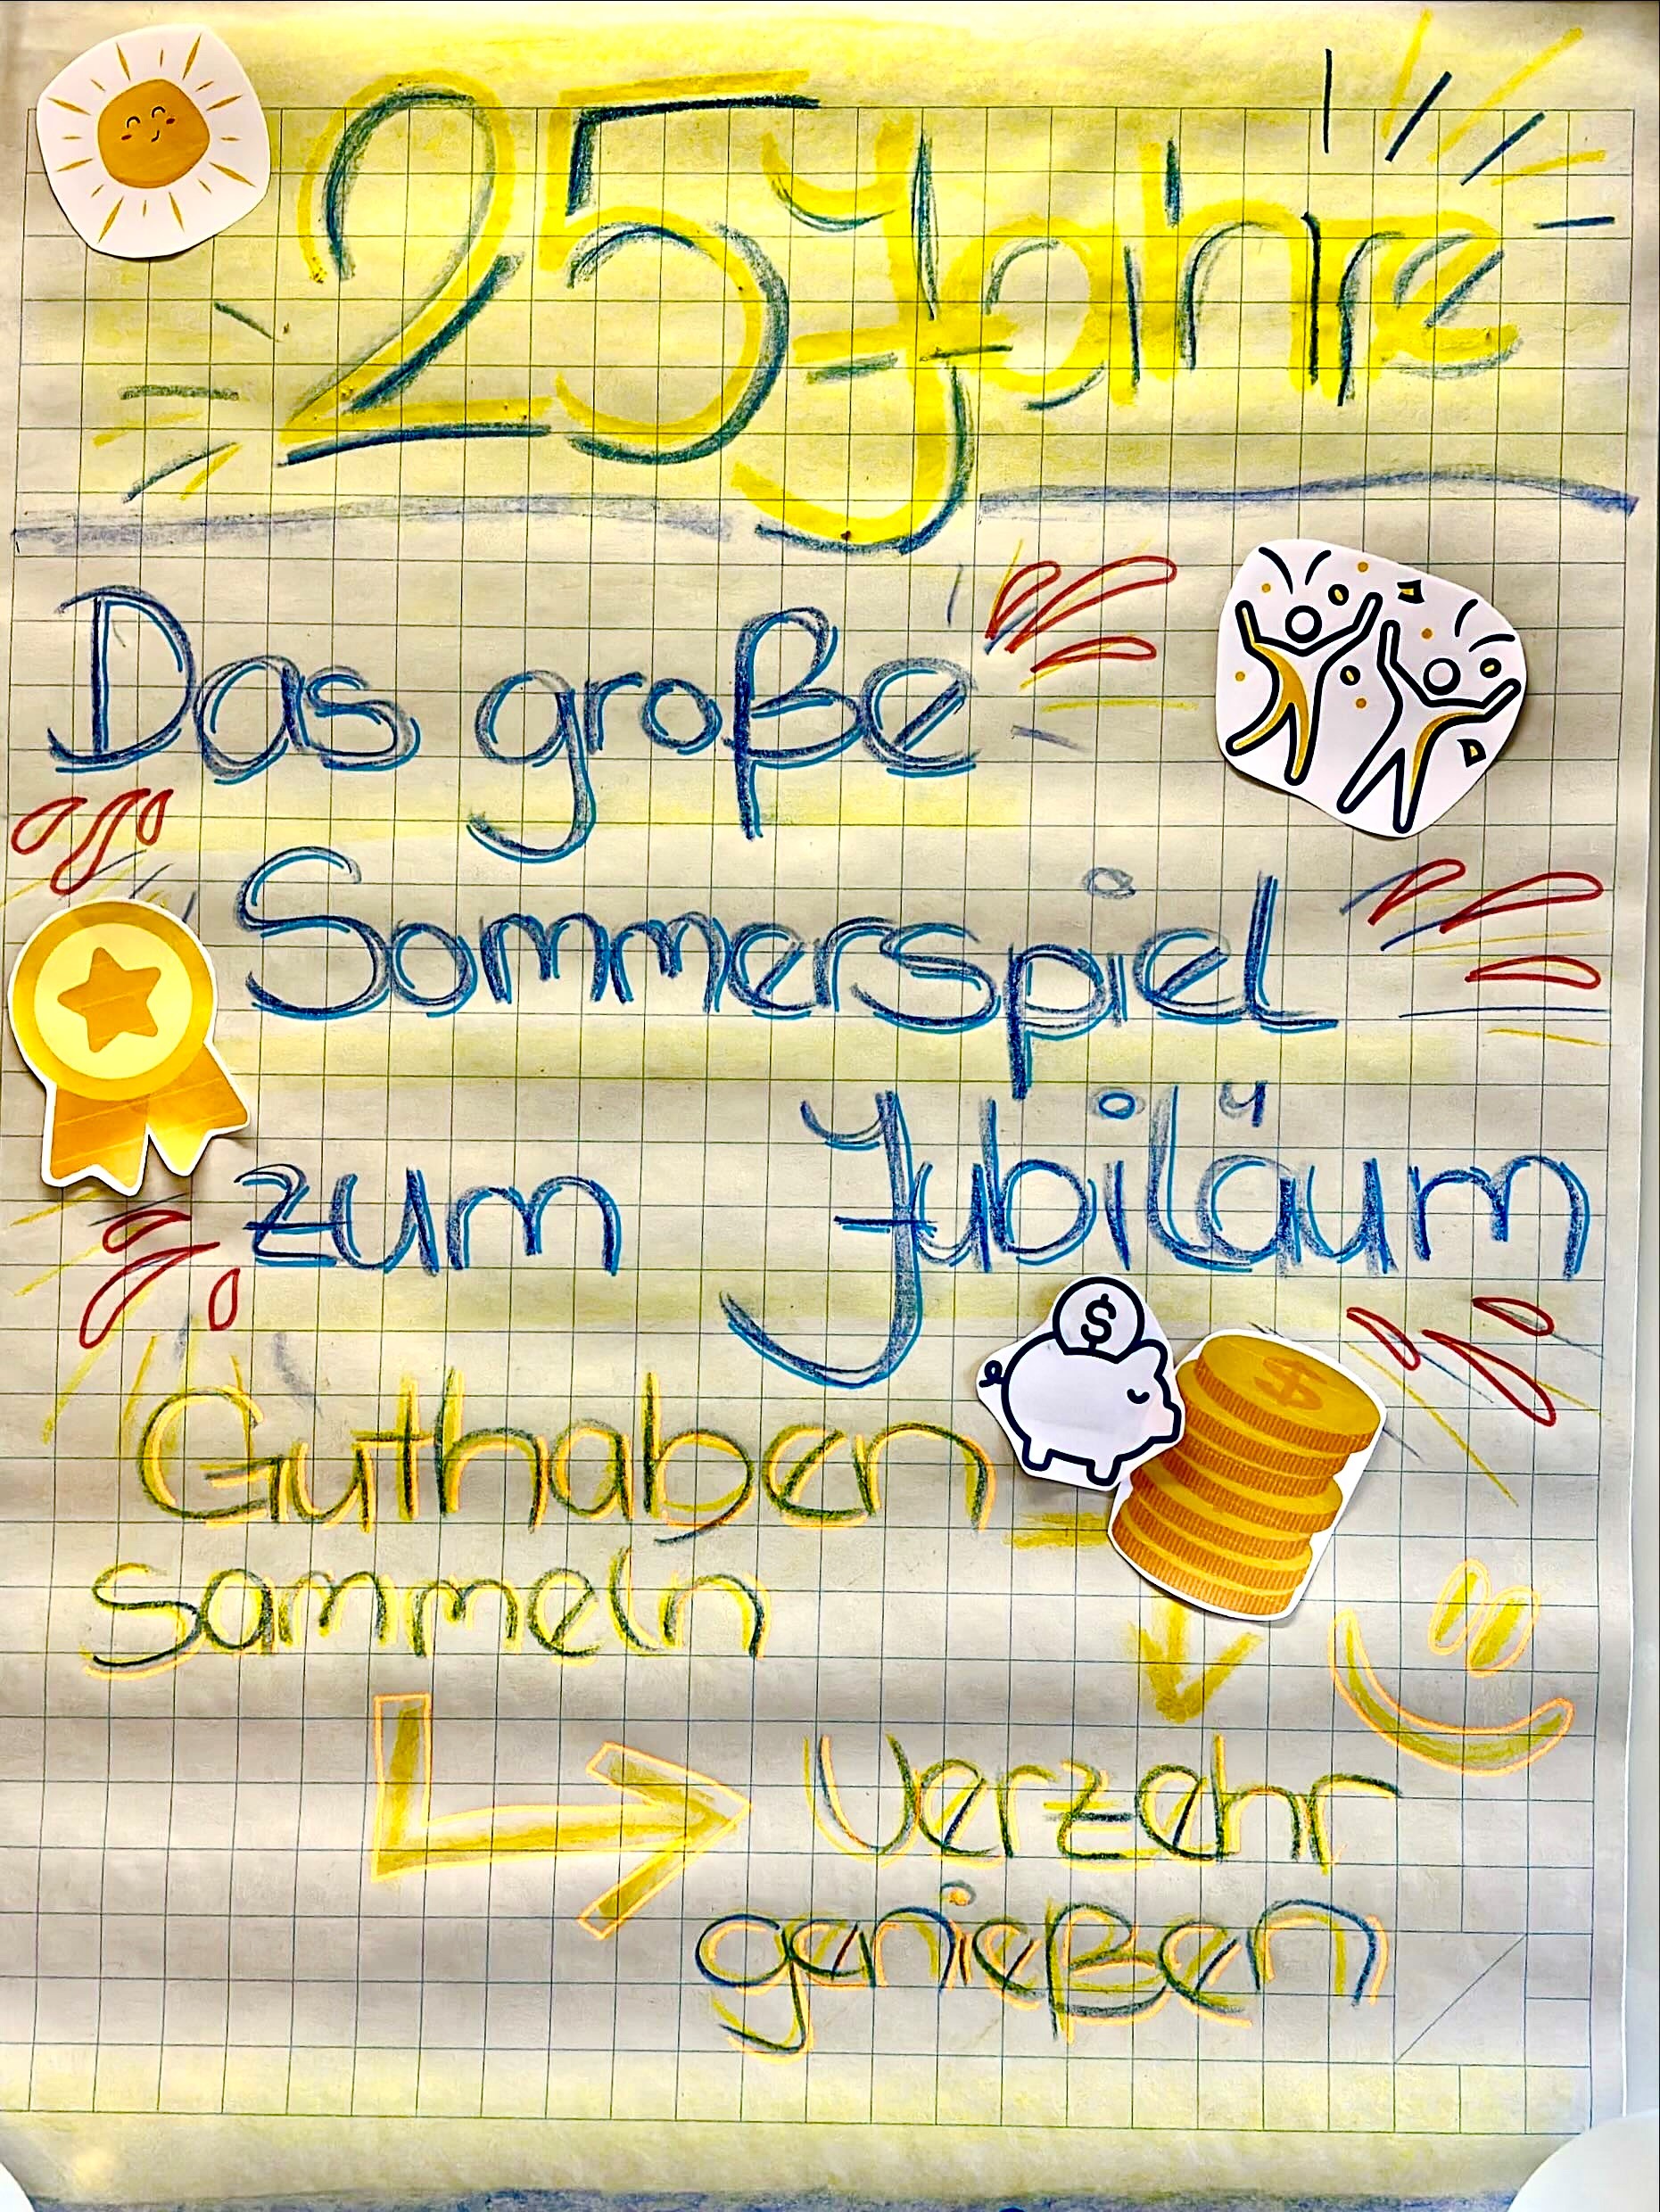 25 Jahre
Das große
Sommerspiel
zum Jubiläum
$
$
Guthaben
sammeln
Verzehr
genießen